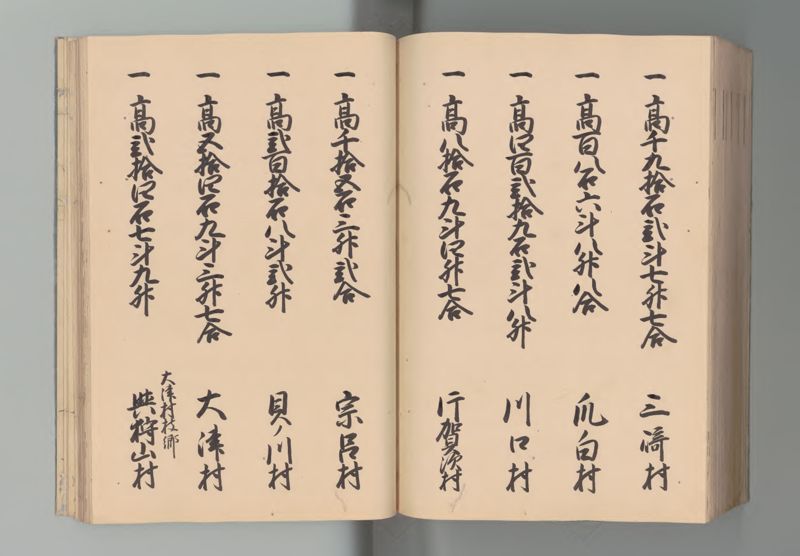 一 高千九拾石弐斗七升七合 三崎村
一 高百八石六斗八升八合 爪白村
一 高四百弐拾九石弐斗八升 川口村
一 高八拾石九斗四升七合 行賀須村
一 高千拾五石三升弐合 宗呂村
一 高弐百拾石八斗弐升 貝ノ川村
一 高五拾四石九斗三升七合 大津村
一 高弐拾四石七斗九升 大津村枝郷 與狩山村